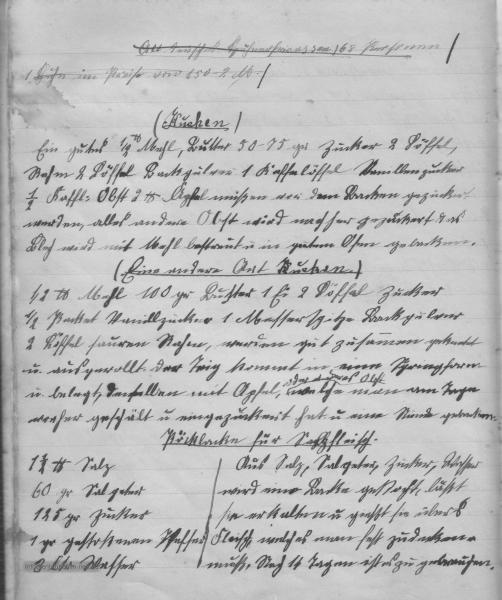 1 Huhn im Preise von 150-2 M.
(Kuchen)
Ein gutes 1/2 ℔ Mehl, Butter 50-75 gr Zucker 2 Löffel,
Rahm 2 Löffel Backpulver 1 Kaffelöffel Vanillenzucker
1/2 Kaffl. Obst 2 ℔ Äpfel müssen vor dem Backen gezuckert
werden, alles andere Obst wird nachher gezuckert das
Blech wird mit Mehl bestreut u in gutem Ofen gebacken.
(Eine andere Art Kuchen)
1/2 ℔ Mehl 100 gr Butter 1 Ei 2 Löffel Zucker
1/2 Packet Vanillzucker 1 Messerspitze Backpulver
2 Löffel sauren Rahm, werden gut zusammen geknetet
u ausgerollt der Teig kommt in eine Springform
u belegt denselben mit Äpfel, oder anderes Obst welche man am Tage
vorher geschält u eingezuckert hat u eine Stunde gebacken.
Pöcklacke für Salzfleisch.
1 ℔ Salz
60 gr Salpeter
125 gr Zucker
1 gr gestossenen Pfeffer
3 Ltr Wasser
Aus Salz, Salpeter, Zucker, Wasser
wird eine Lacke gekocht, lässt
sie erkalten u giesst sie übers
Fleisch, welches man fest zudecken
muss. Nach 14 Tagen ist es zu gebrauchen.